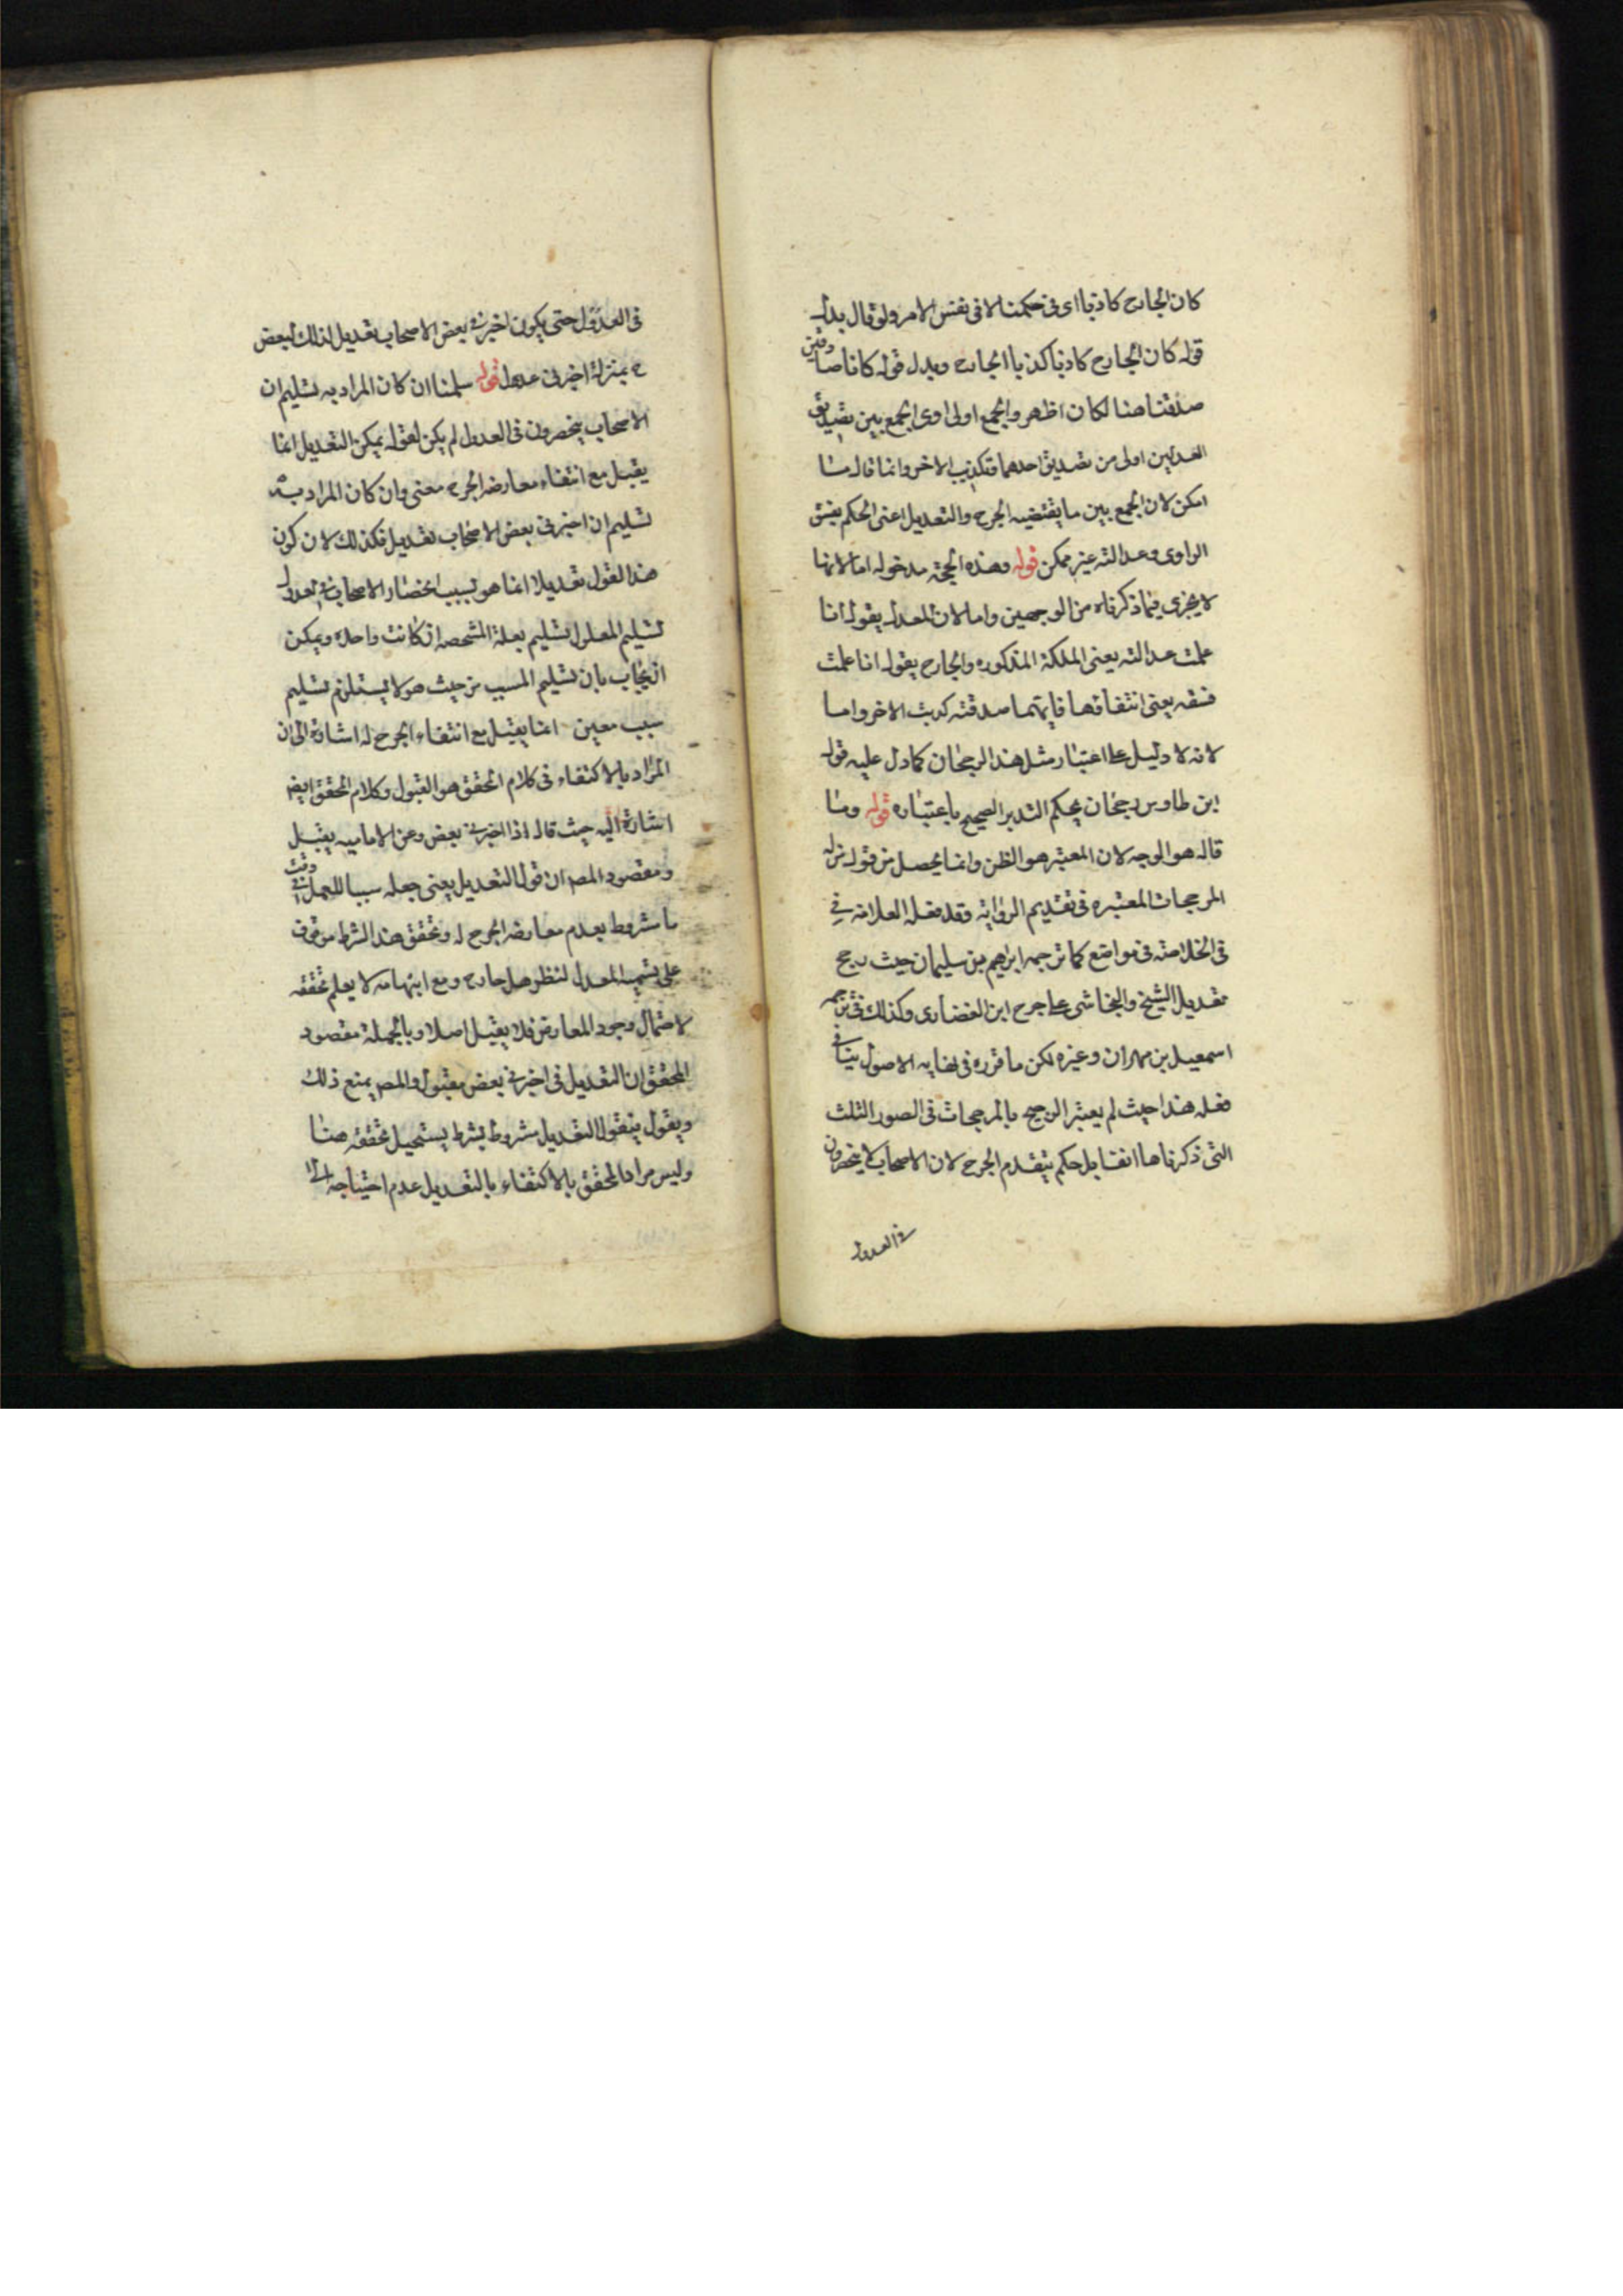 كان الجارح كاذبا اى فى حكمنا لا فى نفس الامر ولو قال بدل
قوله كان الجارح كاذبا كذبنا الجارح وبدل قوله كانا صادقين
صدقنا هنا لكان اظهر والجمع اولى اوى الجمع بين تصديق
العدلين اولى من تصديق احدهما وتكذيب الاخر وانما قال ما
امكن لان الجمع بين ما يقتضيه الجرح والتعديل اعنى الحكم بفسق
الراوى وعدالته غير ممكن قوله وهذه الحجة مدخوله اما لانها
لا يجزى فيما ذكرناه من الوجهين واما لان المعدل يقول انا
علمت عدالته يعنى الملكة المذكوره والجارح يقول انا علمت
فسقه يعنى انتفاءها فايتهما صدقته كذبت الاخر واما
لانه لا دليل على اعتبار مثل هذا الرجحان كما دل عليه قول
ابن طاوس رجحان يحكم التدبر الصحيح باعتباره قوله وما
قاله هو الوجه لان المعتبر هو الظن وانما يحصل من قوله
المرجحات المعتبره فى تقديم الرواية وقد فعله العلامه فى
فى الخلاصه فى مواضع كما ترجمه ابراهيم بن سليمان حيث رجح
تعديل الشيخ والنجاشى على جرح ابن الغضايرى وكذلك فى ترجمه
اسمعيل بن مهران وغيره لكن ما قرره فى نهايه الاصول ينافى
فعله هذا حيث لم يعتبر الترجيح بالمرجحات فى الصور الثلث
التى ذكرناها انفا بل حكم بتقدم الجرح لان الاصحاب لا ينحصرون
فى العدول
فى العدول حتى يكون اخبرنى بعض الاصحاب تعديل لذلك البعض
ح بمنزلة اخبرنى عدل قوله سلمنا ان كان المراد به تسليم ان
الاصحاب ينحصرون فى العدول لم يكن لقوله يمكن التعديل انما
يقبل مع انتفاء معارضه الجرح معنى وان كان المراد به
تسليم ان اخبرنى بعض الاصحاب تعديل فكذلك لان كون
هذا القول تعديلا انما هو بسبب انحصار الاصحاب فى العدول
تسليم المعلول تسليم بعلة المشخصه اذ كانت واحدة ويمكن
ان يجاب بان تسليم المسبب من حيث هو لا يستلزم تسليم
سبب معين انما يقبل مع انتفاء الجرح له اشارة الى ان
المراد بالاكتفاء فى كلام المحقق هو القبول وكلام المحقق ايض
اشارة اليه حيث قال اذا اخبرنى بعض وعن الاماميه يقبل
ومقصود المص ان قول التعديل يعنى جعله سببا للعمل فى وقت
ما مشروط بعدم معارضه الجرح له وتحقق هذا الشرط موقوف
على تسميه المعدل لننظر هل جارح ومع ابهامه لا يعلم تحققه
لاحتمال وجود المعارض فلا يقبل اصلا وبالجملة مقصود
المحقق ان التعديل فى اخبرنى بعض مقبول والمص يمنع ذلك
ويقول بقبول التعديل مشروط بشرط يستحيل تحققه هنا
وليس مراد المحقق بالاكتفاء بالتعديل عدم احتياجه الى